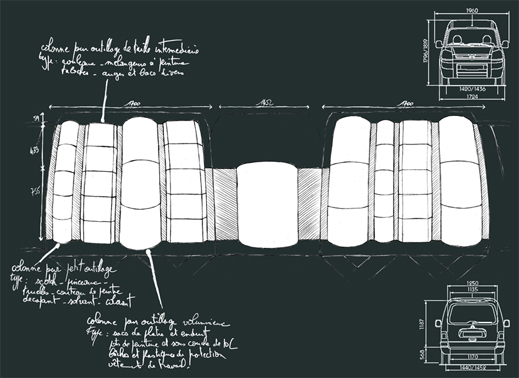 colonne pour outillage de taille intermediaire
type : rouleaux - mélangeurs à peinture
- auges et bacs divers
1960
1796/1819
1420/1436
1724
1700
1452
1700
colonne pour petit outillage
type : scotch - pinceaux -
truelles - couteau de peintre
decapant - solvant - cutter
colonne pour outillage volumineux
type : sacs de platre et enduit
pots de peinture et sous couche de
bâches et plastiques de protection
vêtements de travail.
1250
1135
1137
568
1170
1440/1452